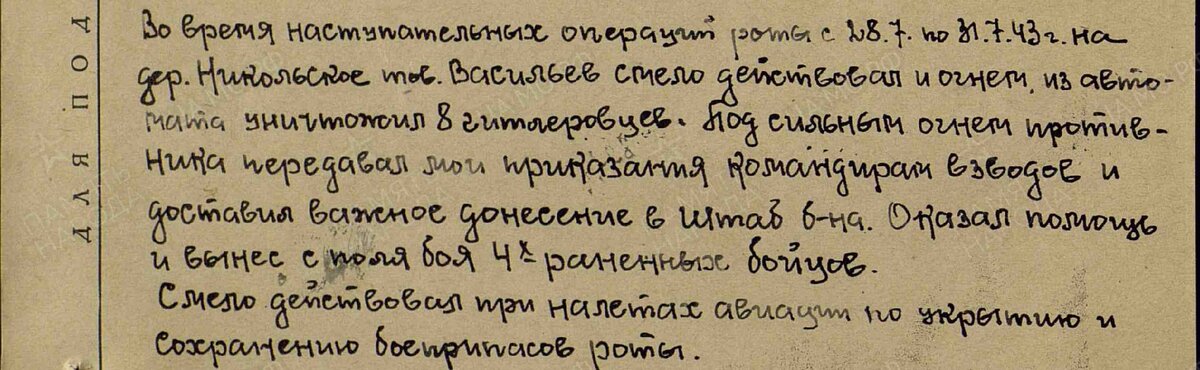 Во время наступательных операций роты с 28.7. по 31.7.43 г. на
дер. Никольское тов. Васильев смело действовал и огнем, из авто-
мата уничтожил 8 гитлеровцев. Под сильным огнем против-
ника передавал мои приказания командирам взводов и
доставил важное донесение в штаб б-на. Оказал помощь
и вынес с поля боя 4х раненных бойцов.
Смело действовал при налетах авиации по укрытию и
сохранению боеприпасов роты.
ДЛЯ ПОД